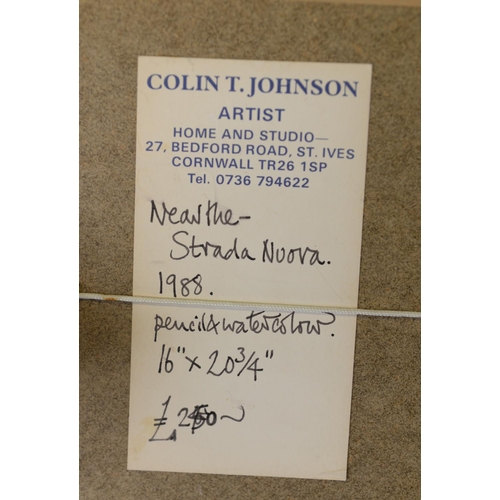 COLIN T. JOHNSON
ARTIST
HOME AND STUDIO—
27, BEDFORD ROAD, ST. IVES
CORNWALL TR26 1SP
Tel. 0736 794622
Near the-
Strada Nuova.
1988.
pencil & watercolour.
16" x 20 3/4"